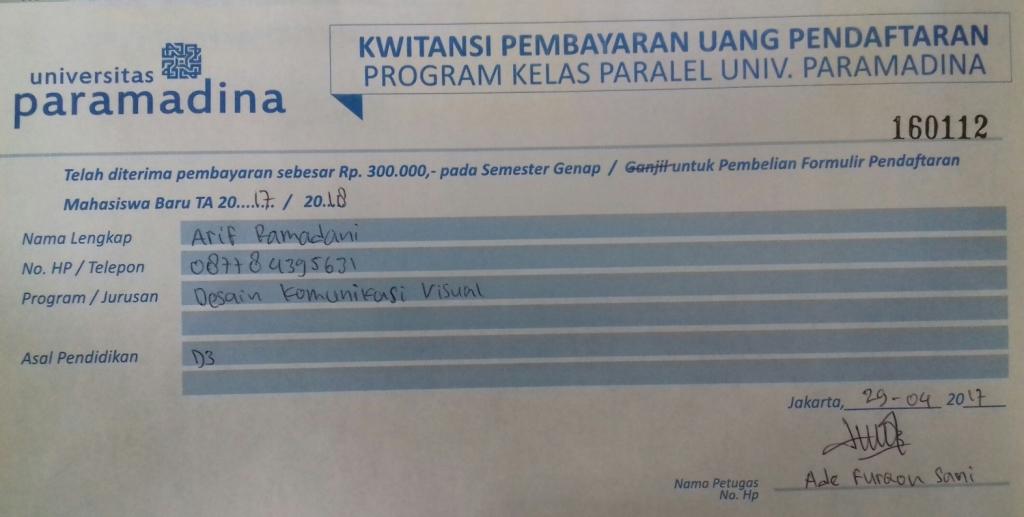 universitas
paramadina
KWITANSI PEMBAYARAN UANG PENDAFTARAN
PROGRAM KELAS PARALEL UNIV. PARAMADINA
160112
Telah diterima pembayaran sebesar Rp. 300.000,- pada Semester Genap / Ganjil untuk Pembelian Formulir Pendaftaran
Mahasiswa Baru TA 20....17. / 20.18
Nama Lengkap Arif Ramadani
No. HP / Telepon 087784395631
Program / Jurusan Desain Komunikasi Visual
Asal Pendidikan D3
Jakarta, 29-04 2017
Nama Petugas Ade Furqon Sani
No. Hp